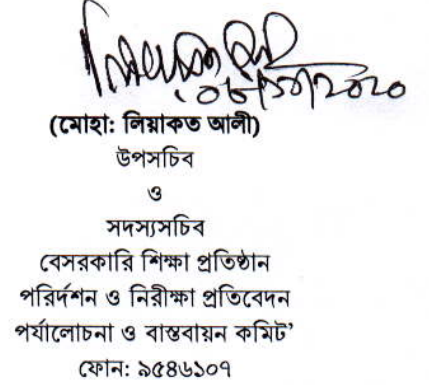 ০৮/১০/২০২০
(মোহা: লিয়াকত আলী)
উপসচিব
ও
সদস্যসচিব
বেসরকারি শিক্ষা প্রতিষ্ঠান
পরিদর্শন ও নিরীক্ষা প্রতিবেদন
পর্যালোচনা ও বাস্তবায়ন কমিট’
ফোন: ৯৫৪৬১০৭